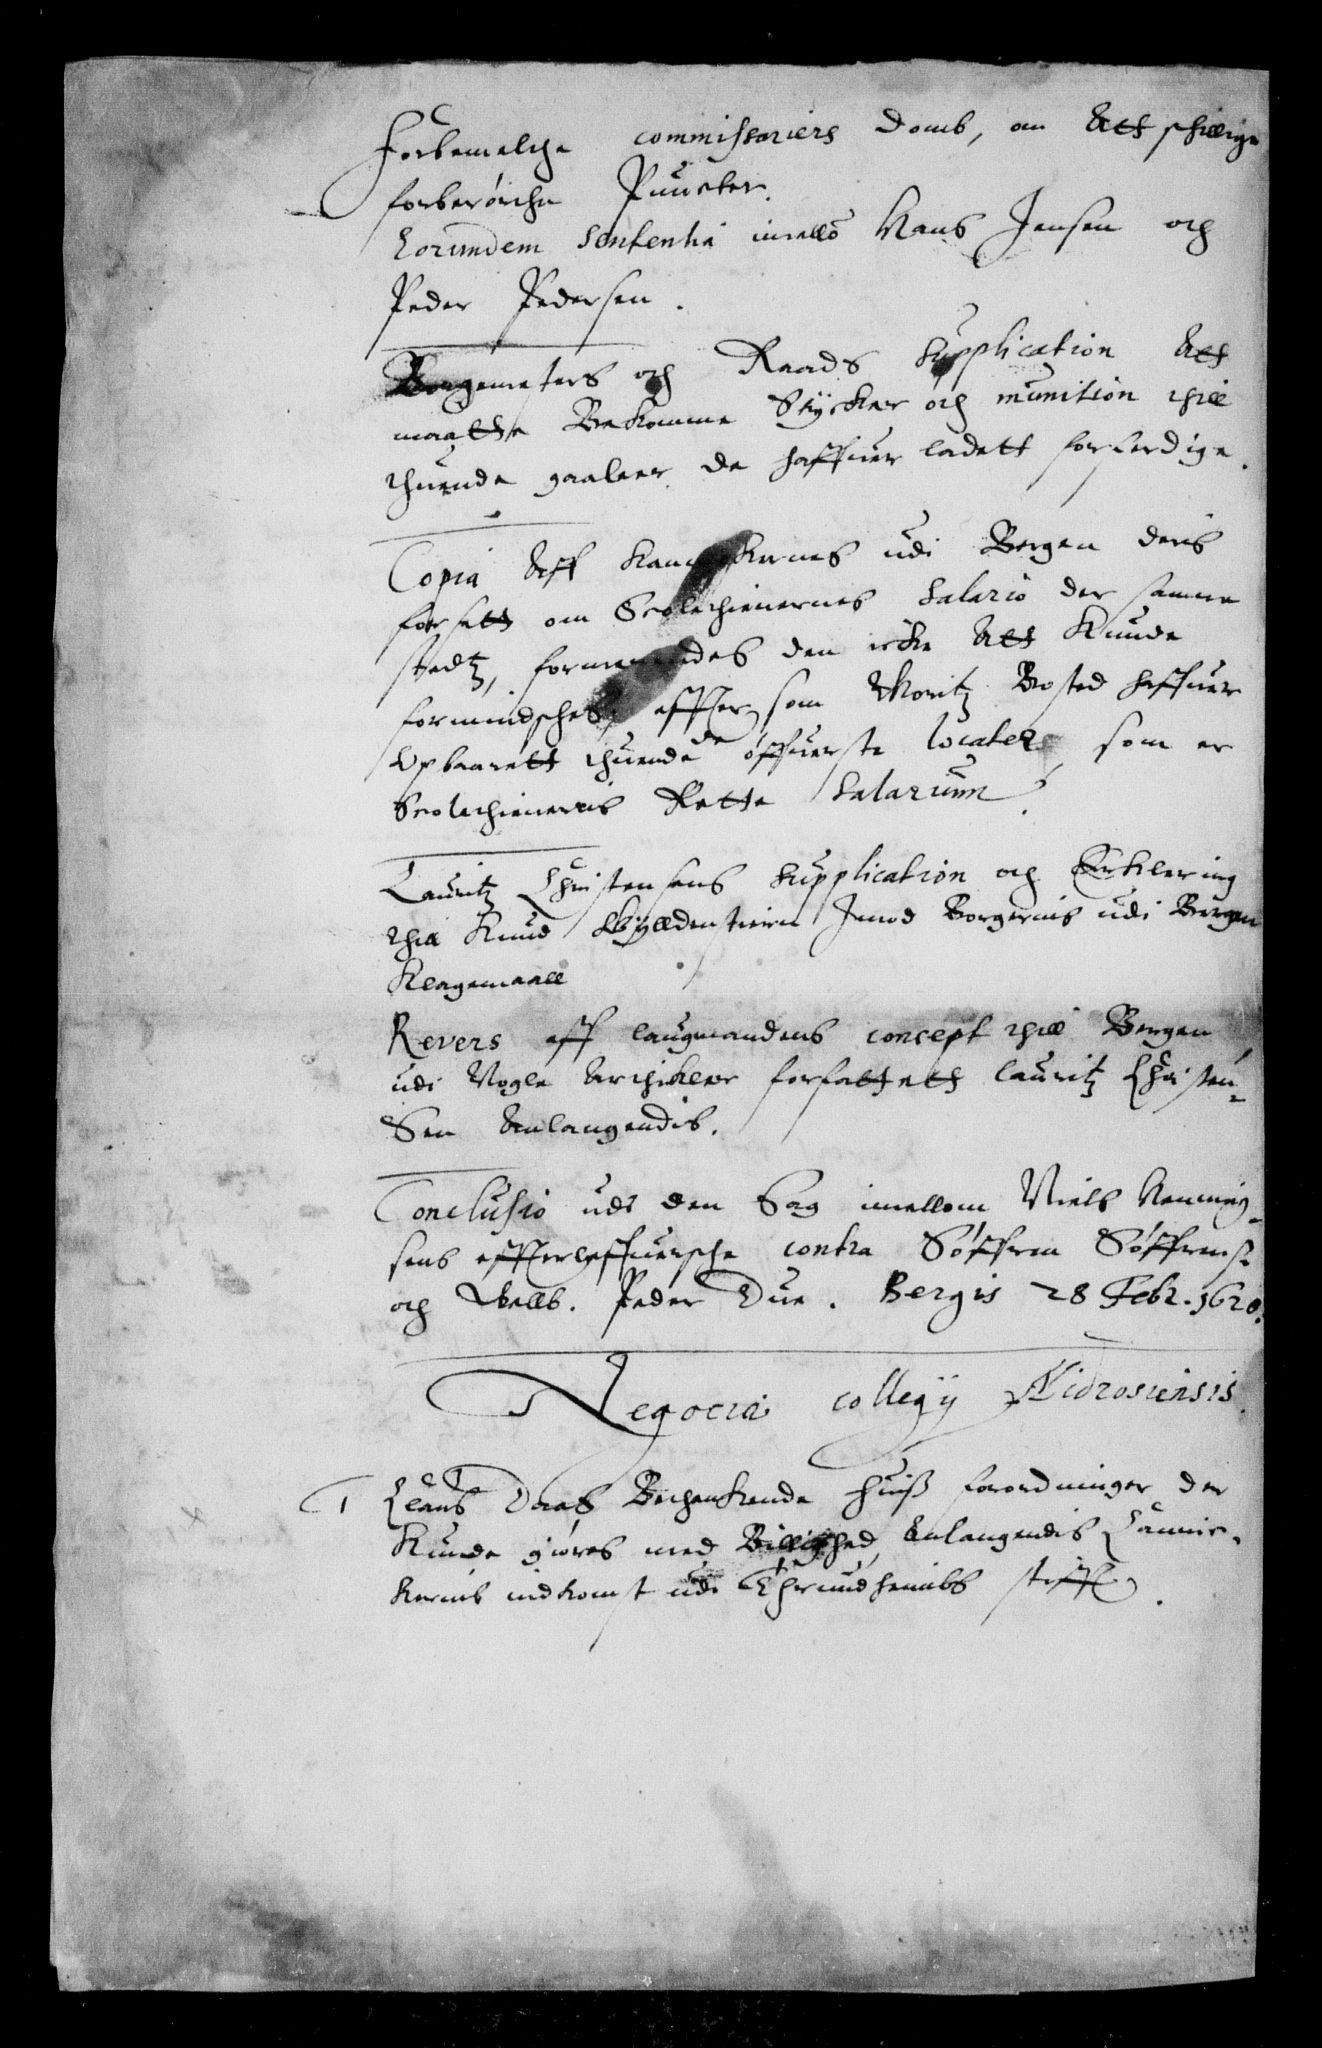 Forbemelte commissariers domb, om Att schillige
forberørthe Puncter.
Eorundem sententia imellō Hans Jensen och
Peder Pedersen.
Borgemesters och Raads Supplication Att
maatte Bekomme Stÿcker och munition thill
thuende gaaleer de haffuer ladett forferdige.
Copia Aff udi Bergen deris
forsætt om Scoletienernes Salario der samme
stedtz, den icke Att Kunde
formindsches, effter som Moritz Bosted haffuer
Opbaarett thuende de øffuerste locater som er
Scoletieneris Rette Salarium.
Lauritz Christensens Supplication och Erklering
thill Knud Gÿlldenstiern Imod Borgernis udi Bergen
Klagemaall
Revers aff laugmandens concept thill Bergen
udi Nogle Artickler forfattett lauritz Christen-
Sen Anlangendis.
Conclusio udi den Sag imellom Niels Henning-
sens effterleffuersche contra Søffren Søffrens.
och Welb. Peder Due. Bergis 28 Febr. 1628.
Negocia collegÿ Nidrosiensis.
1 Claus Daas Betenkende huiss forordninger der
Kunde giøres med Billighed Anlangendis Cannic-
kernis indkomst udi Thrundhembs stifft.